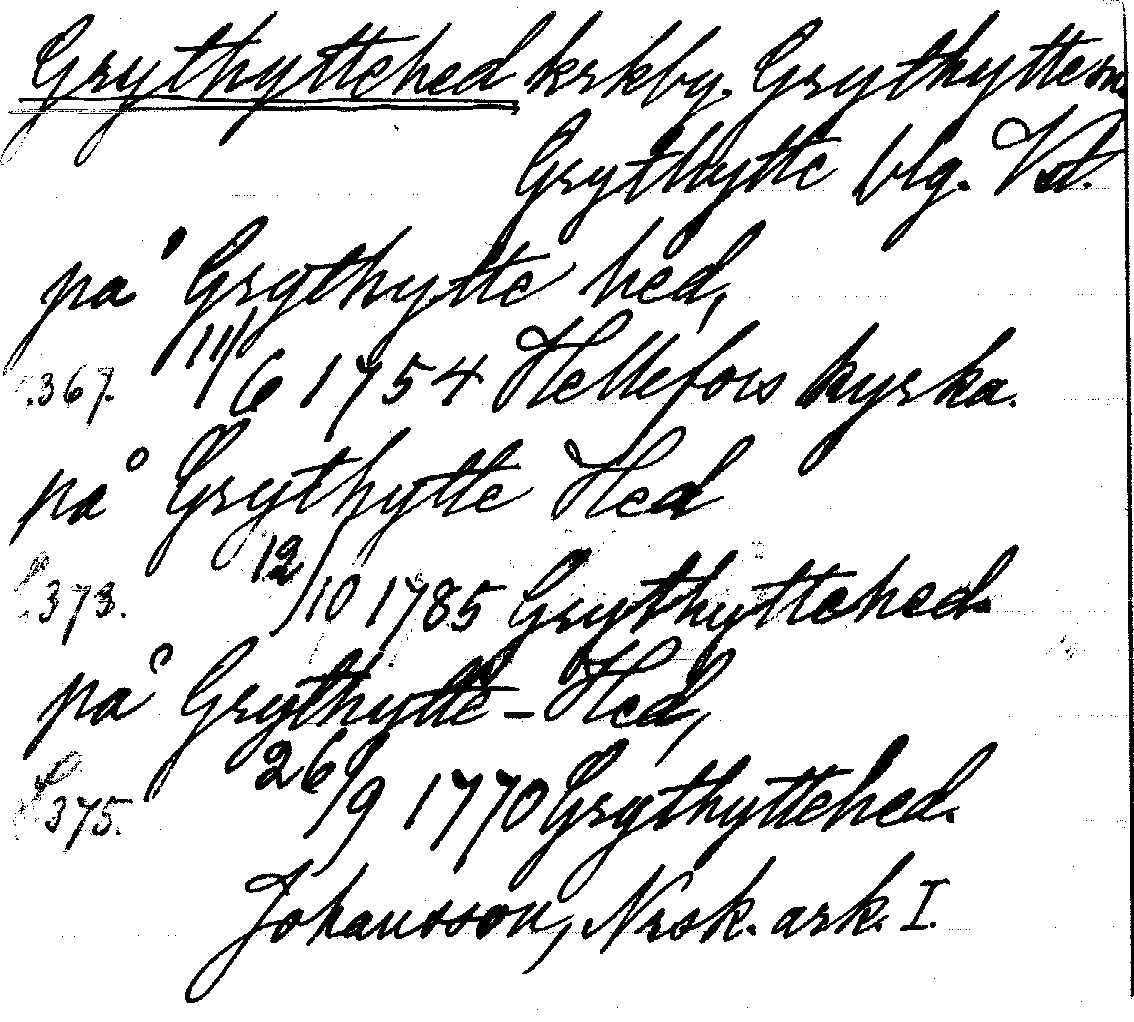 Grythyttehed krkby. Grythytte sn
Grythytte blg. Vstl.
på Grythytte hed,
S.367. 11/6 1754 Hellefors kyrka.
på Grythytte Hed
S.373. 12/10 1785 Grythyttehed.
på Grythytte-Hed,
S.375. 26/9 1770 Grythyttehed.
Johansson, Norsk. ark. I.